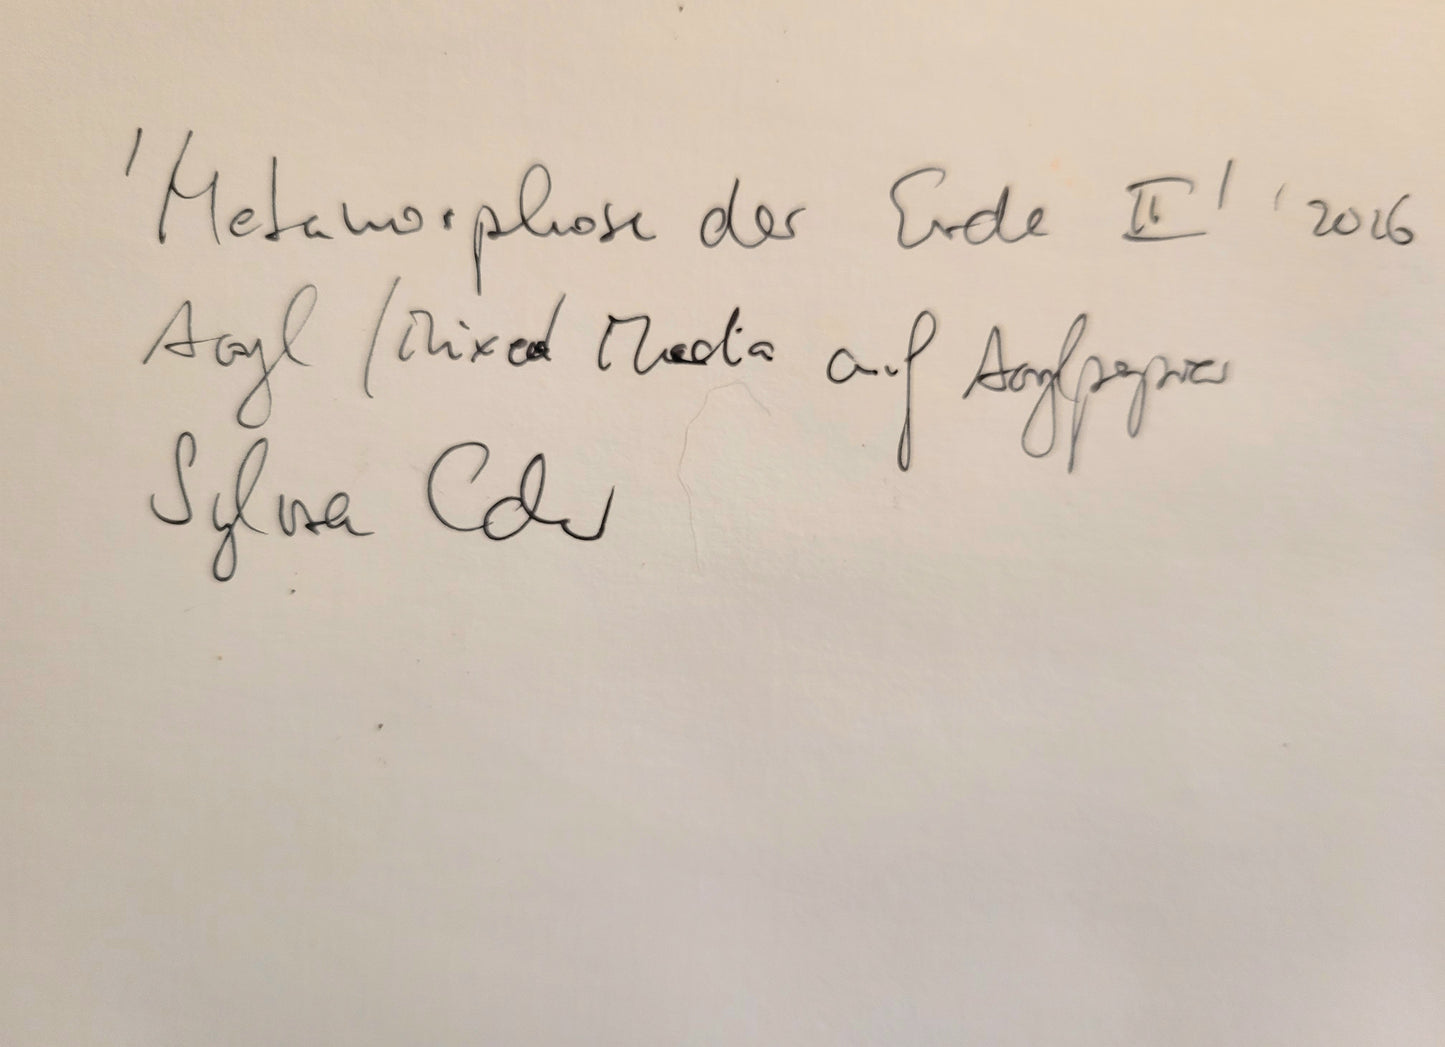 'Metamorphose der Erde II' 2016
Acryl / Mixed Media auf Acrylpapier
Sylvia